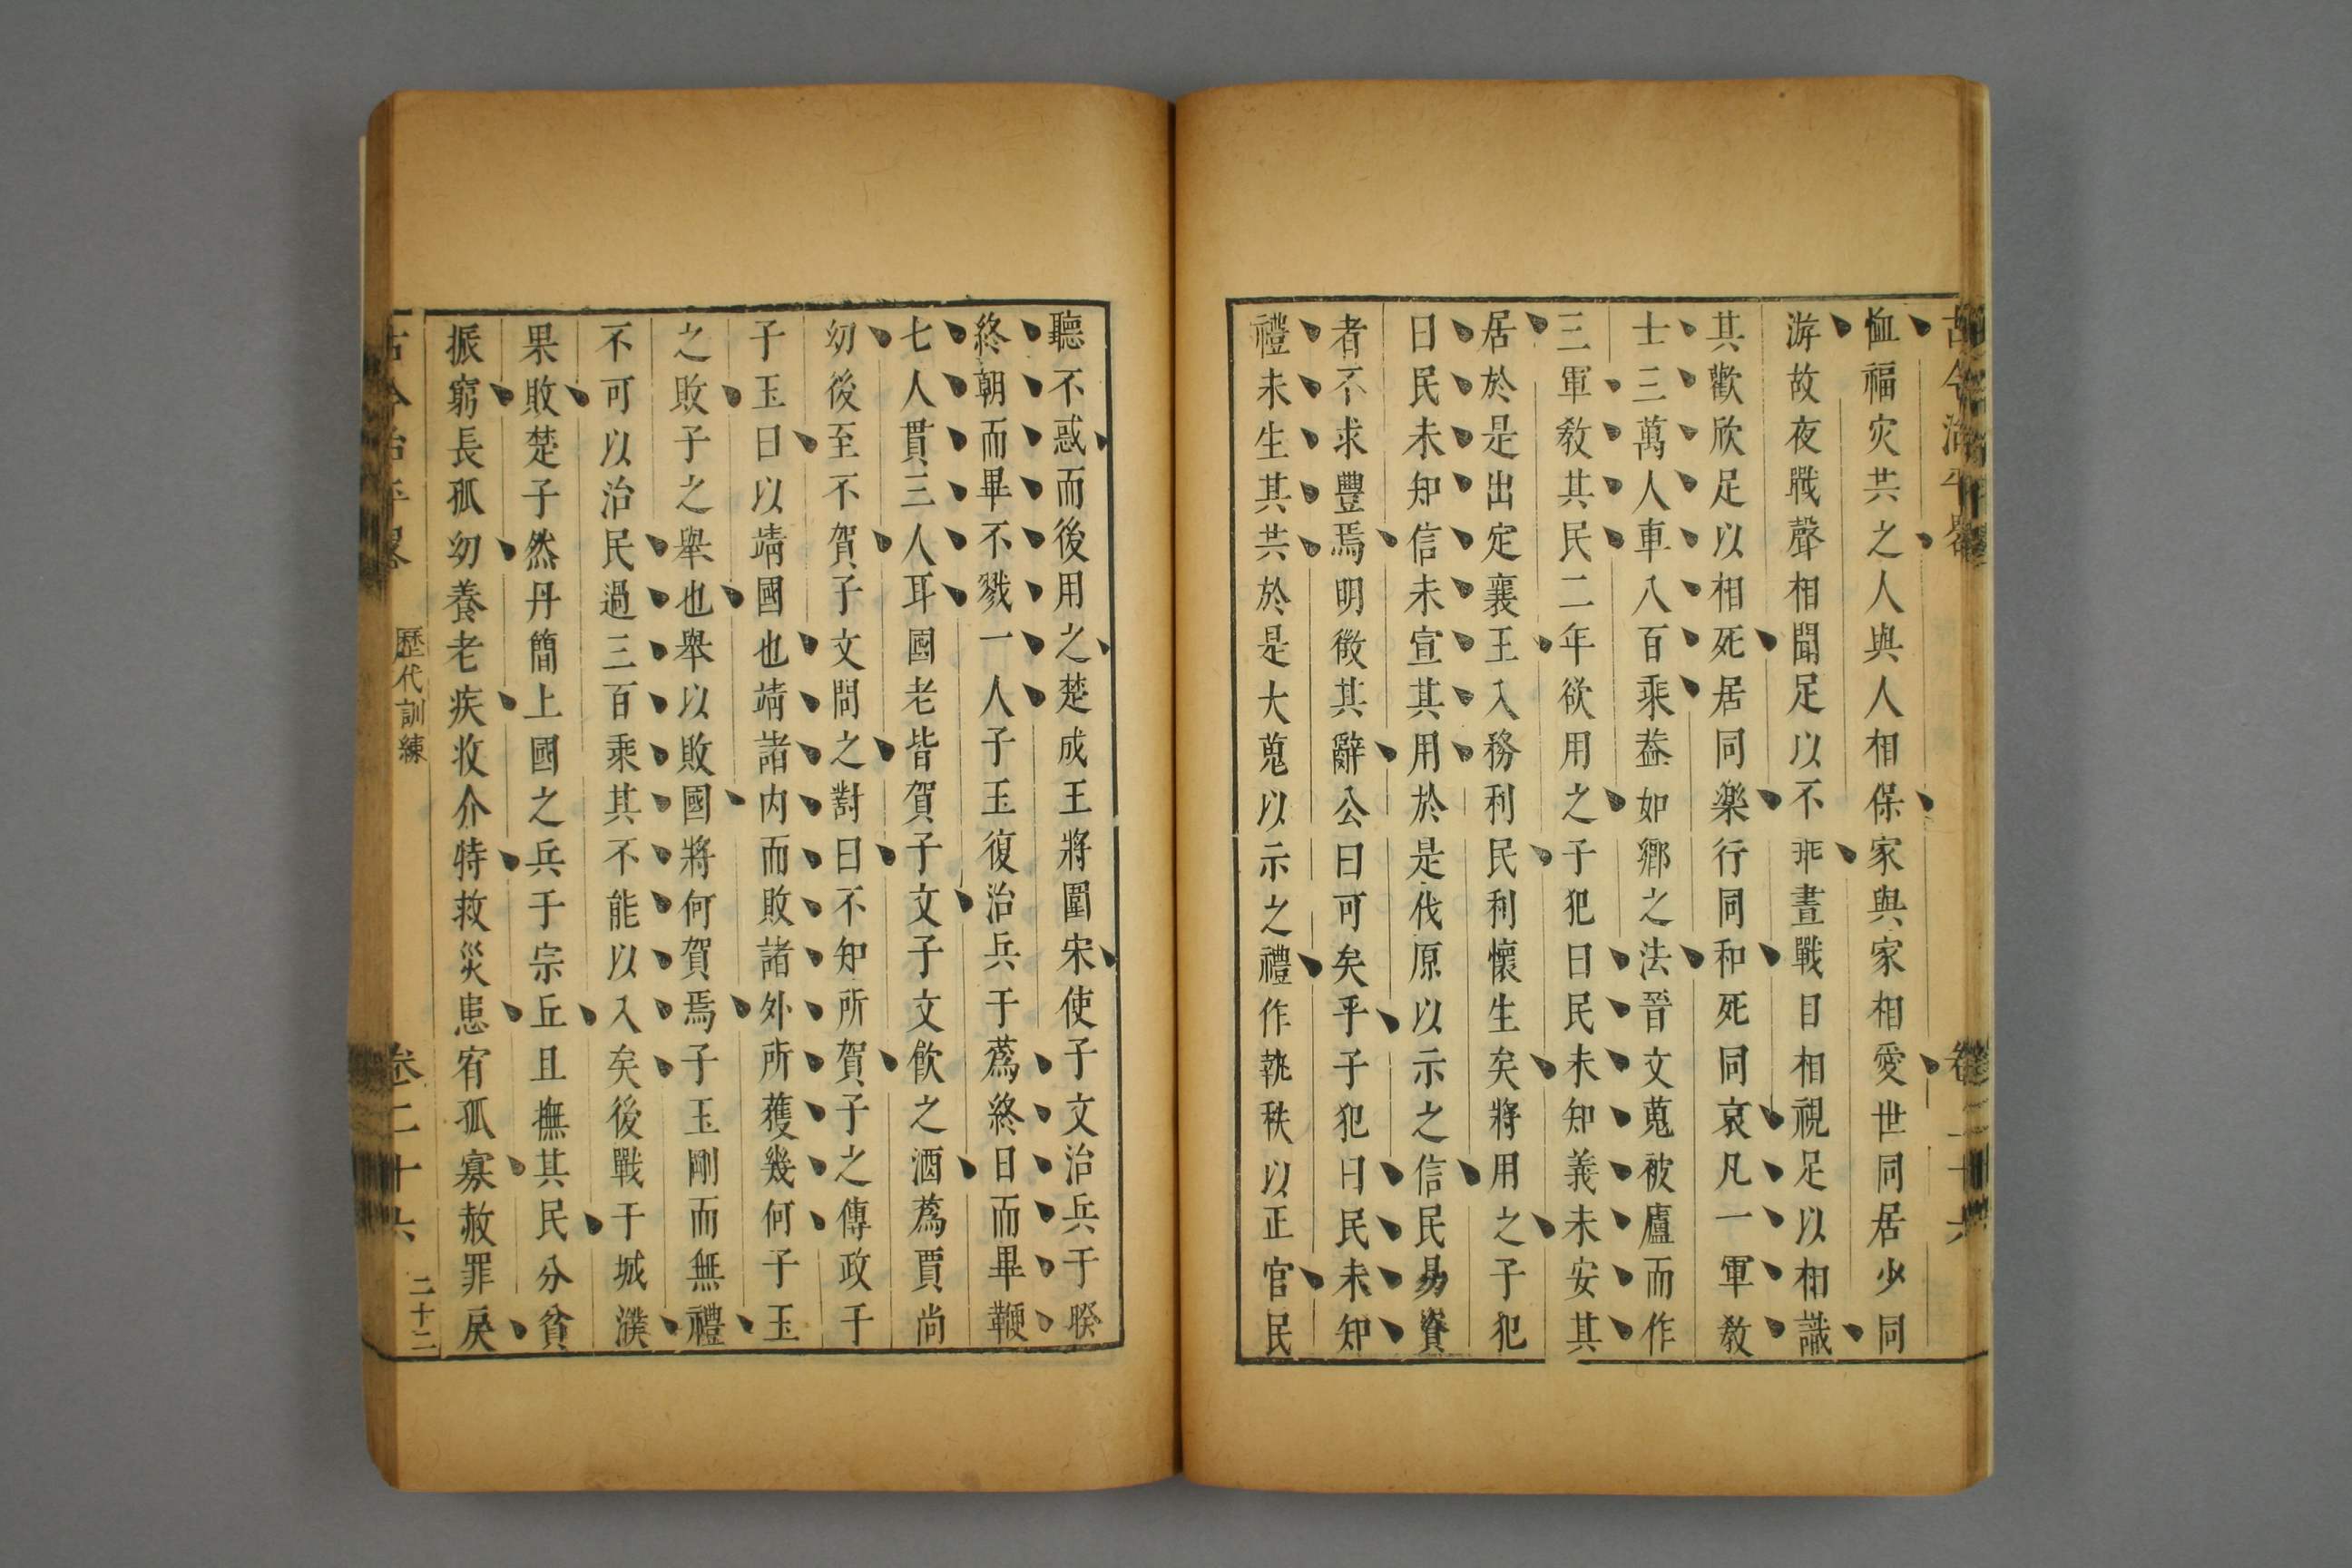 恤福灾共之人與人相保家與家相愛世同居少同
游故夜戰聲相聞足以不乖晝戰目相視足以相識
其歡欣足以相死居同樂行同和死同哀凡一軍教
士三萬人車八百乘葢如鄉之法晉文蒐被廬而作
三軍教其民二年欲用之子犯曰民未知義未安其
居於是出定襄王入務利民利懷生矣將用之子犯
曰民未知信未宣其用於是伐原以示之信民易資
者不求豐焉明徵其辭公曰可矣乎子犯曰民未知
禮未生其共於是大蒐以示之禮作執秩以正官民
聽不惑而後用之楚成王將圍宋使子文治兵于睽
終朝而畢不戮一人子玉復治兵于蒍終日而畢鞭
七人貫三人耳國老皆賀子文子文飲之酒蒍賈尚
幼後至不賀子文問之對曰不知所賀子之傳政于
子玉曰以靖國也靖諸内而敗諸外所獲幾何子玉
之敗子之舉也舉以敗國將何賀焉子玉剛而無禮
不可以治民過三百乘其不能以入矣後戰于城濮
果敗楚子然丹簡上國之兵于宗丘且撫其民分貧
振窮長孤幼養老疾收介特救災患宥孤寡赦罪戾
歷代訓練
卷二十六
二十二